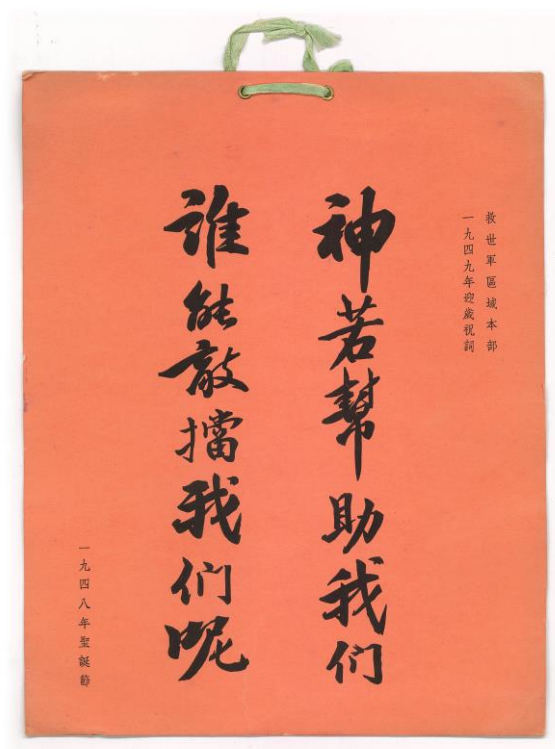 救世軍區域本部
一九四九年迎歲祝詞
神若幫助我们
誰能敵擋我们呢
一九四八年聖誕節